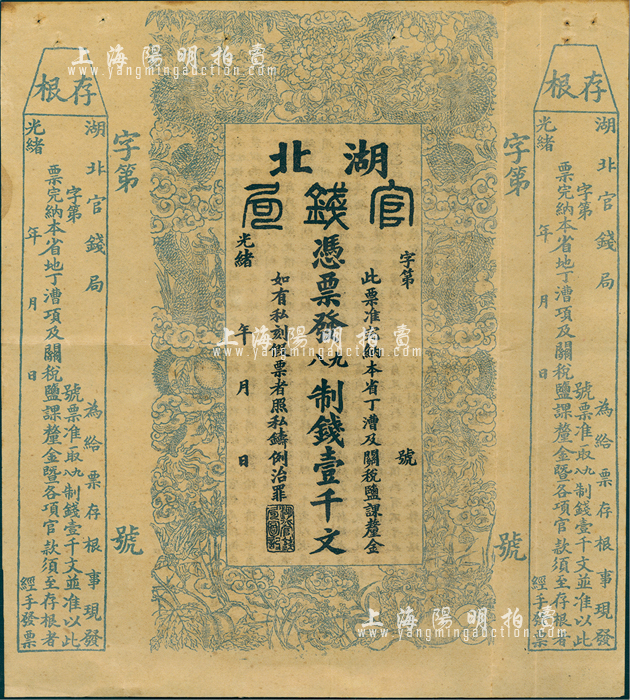 上海陽明拍賣
www.yangmingauction.com
存根
湖北官錢局 為給票存根事現發
字第 號票准取九八制錢壹千文並准以此
票完納本省地丁漕項及關稅鹽課釐金暨各項官款須至存根者
光緒 年 月 日 經手發票
字第 號
湖北
官錢局
字第 號
此票准完納本省丁漕及關稅鹽課釐金
憑票發九八制錢壹千文
如有私刻假票者照私鑄例治罪
光緒 年 月 日
字第 號
存根
湖北官錢局 為給票存根事現發
字第 號票准取九八制錢壹千文並准以此
票完納本省地丁漕項及關稅鹽課釐金暨各項官款須至存根者
光緒 年 月 日 經手發票
上海陽明拍賣
www.yangmingauction.com
上海陽明拍賣
www.yangmingauction.com